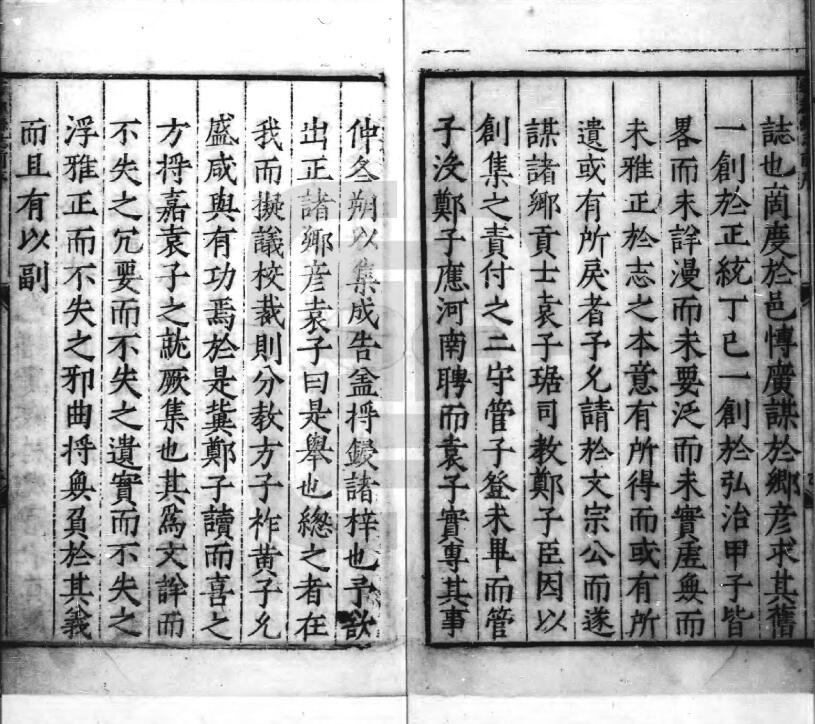 誌也啇度於邑愽廣謀於郷彦求其舊
一創於正統丁巳一創於弘治甲子皆
畧而未詳漫而未要泛而未實虗奐而
未雅正於志之本意有所得而或有所
遺或有所戾者予允請於文宗公而遂
謀諸郷貢士袁子琚司教鄭子臣因以
創集之責付之二守管子登未畢而管
子没鄭子應河南聘而袁子實專其事
仲冬朔以集成告盆捋鋟諸梓也予欲
出正諸郷彦袁子曰是舉也緫之者在
我而擬議校裁則分教方子柞黄子允
盛咸與有功焉於是冀鄭子讀而喜之
方捋嘉袁子之就厥集也其爲文詳而
不失之冗要而不失之遺實而不失之
浮雅正而不失之邪曲捋奐負於其義
而且有以副